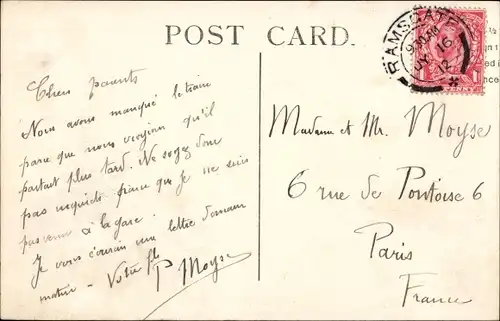 POST CARD.
RAMSGATE
JY 16
12
PENNY
1
Chers parents
Nous avons manqué le train
parce que nous croyions qu'il
partait plus tard. Ne soyez donc
pas inquiets parce que je ne suis
pas venu à la gare.
Je vous écrirai une lettre demain
matin - Votre fils
P Moyse
Madame et Mr. Moyse
6 rue de Pontoise 6
Paris
France